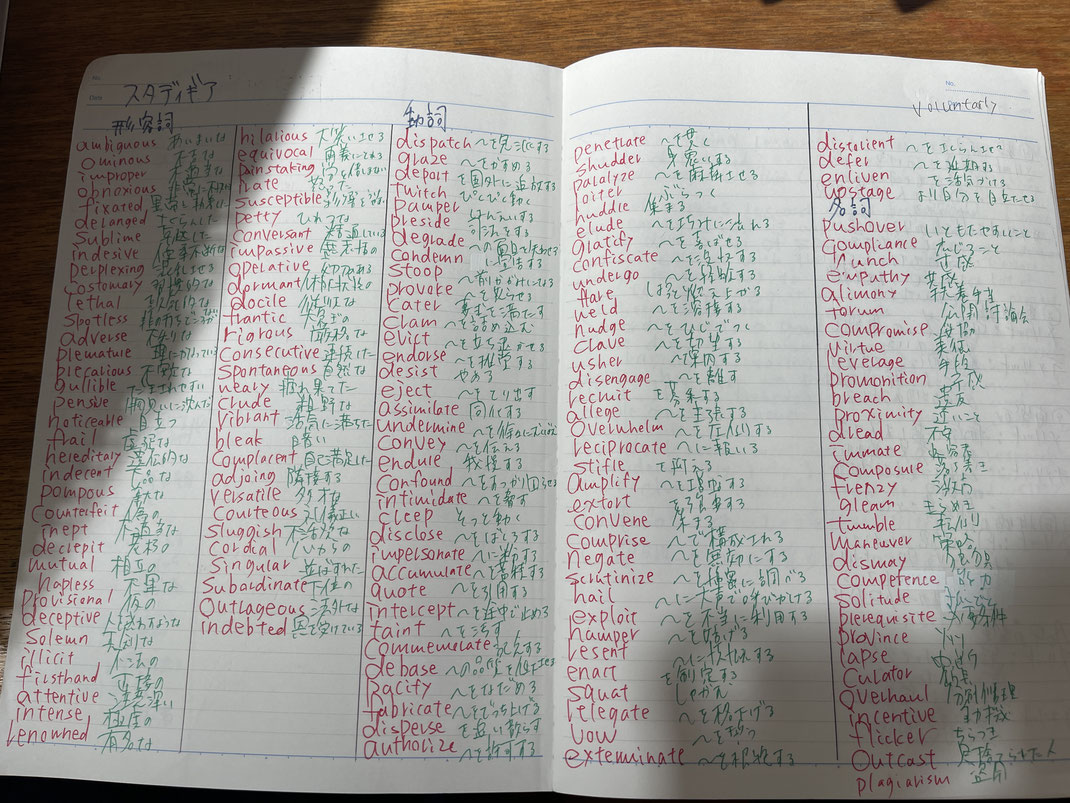 No.
Date
スタディギア
形容詞
ambiguous あいまいな
ominous 不吉な
improper 不適当な
obnoxious 非常に不快な
fixated
deranged
Sublime 卓越した
indesive 優柔不断な
perplexing 混乱させる
costomary 習慣的な
lethal 致命的な
Spotless
adverse 不利な
premature
precarious
gullible
pensive
noticeable 目立つ
frail 虚弱な
hereditary 遺伝的な
indecent 下品な
pompous
counterfeit 偽の
inept 不適当な
decrepit 老朽の
mutual 相互の
hapless 不運な
provisional 仮の
deceptive 人を惑わすような
solemn 深刻な
illicit 不法の
firsthand 直接の
attentive 注意深い
intense 極度の
renowned 有名な
hilarious 大笑いさせる
equivocal 両義にとれる
painstaking
irate 怒った
susceptible 影響を受ける
petty ひれつな
conversant 精通している
impassive 無表情の
operative
dormant 休止状態の
docile 従順な
frantic 狂乱の
rigorous 厳格な
consecutive 連続した
spontaneous 自然な
weary 疲れ果てた
crude 粗野な
vibrant 活気に満ちた
bleak 暗い
complacent 自己満足した
adjoing 隣接する
versatile 多才な
courteous 礼儀正しい
sluggish 不活発な
cordial 心からの
singular 並はずれた
subordinate 下位の
outrageous 法外な
indebted 恩を受けている
動詞
dispatch
graze ~をかすめる
deport を国外に追放する
twitch ぴくぴく動く
pamper
preside 司会をする
degrade
condemn
stoop
provoke ~を怒らせる
cater
cram ~を詰め込む
evict ~を立ち退かせる
endorse
desist やめる
eject ~をとり出す
assimilate 同化する
undermine
convey ~を伝える
endure 我慢する
confound
intimidate ~を脅す
creep そっと動く
disclose
impersonate
accumulate ~を蓄積する
quote ~を引用する
intercept ~を途中で止める
taint ~を汚す
commemorate
debase ~の品質を低下させる
pacify ~をなだめる
fabricate ~をでっち上げる
disperse を追い散らす
authorize ~を許可する
penetrate ~を貫く
shudder 身震いする
paralyze ~を麻痺させる
loiter ぶらつく
huddle 集まる
elude
gratify ~を喜ばせる
confiscate ~を没収する
undergo ~を経験する
flare ぱっと燃え上がる
weld ~を溶接する
nudge ~をひじでつく
crave
usher ~を案内する
disengage ~を離す
recruit を募集する
allege ~を主張する
overwhelm ~を圧倒する
reciprocate ~に報いる
stifle を抑える
amplify ~を増幅する
extort
convene 集まる
comprise ~で構成される
negate ~を無効にする
scrutinize
hail ~に大声で呼びかける
exploit ~を不当に利用する
hamper ~を妨げる
resent
enact を制定する
squat しゃがむ
relegate
vow ~を誓う
exterminate ~を根絶する
No.
voluntarly
disorient
defer ~を延期する
enliven ~を活気づける
upstage より自分を目立たせる
名詞
pushover いともたやすいこと
compliance 応じること
grunch
empathy 共感
alimony 扶養手当
forum 公開討論会
compromise 妥協
virtue 美徳
leverage 手段
promonition 予感
breach 違反
proximity 近いこと
dread
inmate
composure 落ち着き
frenzy
gleam きらめき
tumble
maneuver 策略
dismay
competence 能力
solitude
prerequisite 必要条件
province
lapse
curator
overhaul 分解修理
incentive 動機
flicker ちらつき
outcast 見捨てられた人
plagiarism 盗作